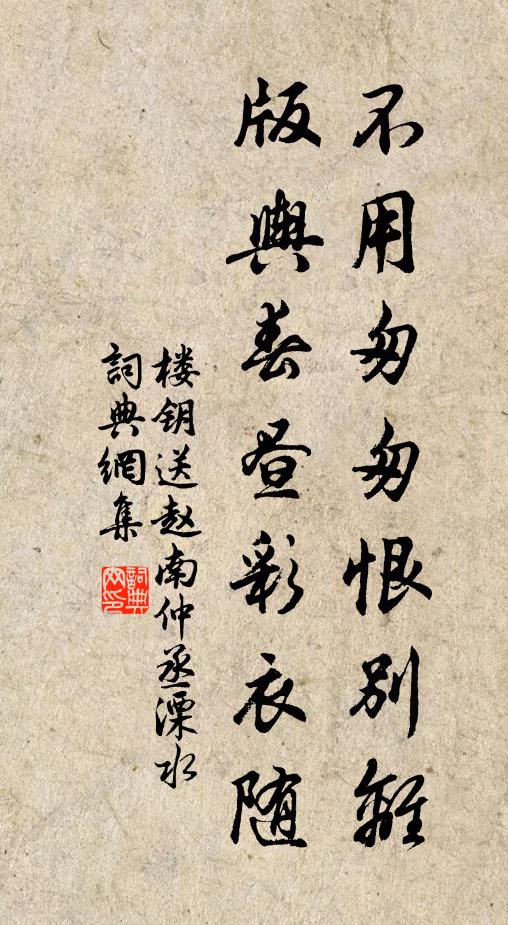 不用匆匆恨别離
版輿春昼彩衣随
楼钥送赵南仲丞溧水
詞典網集
詞典
网印